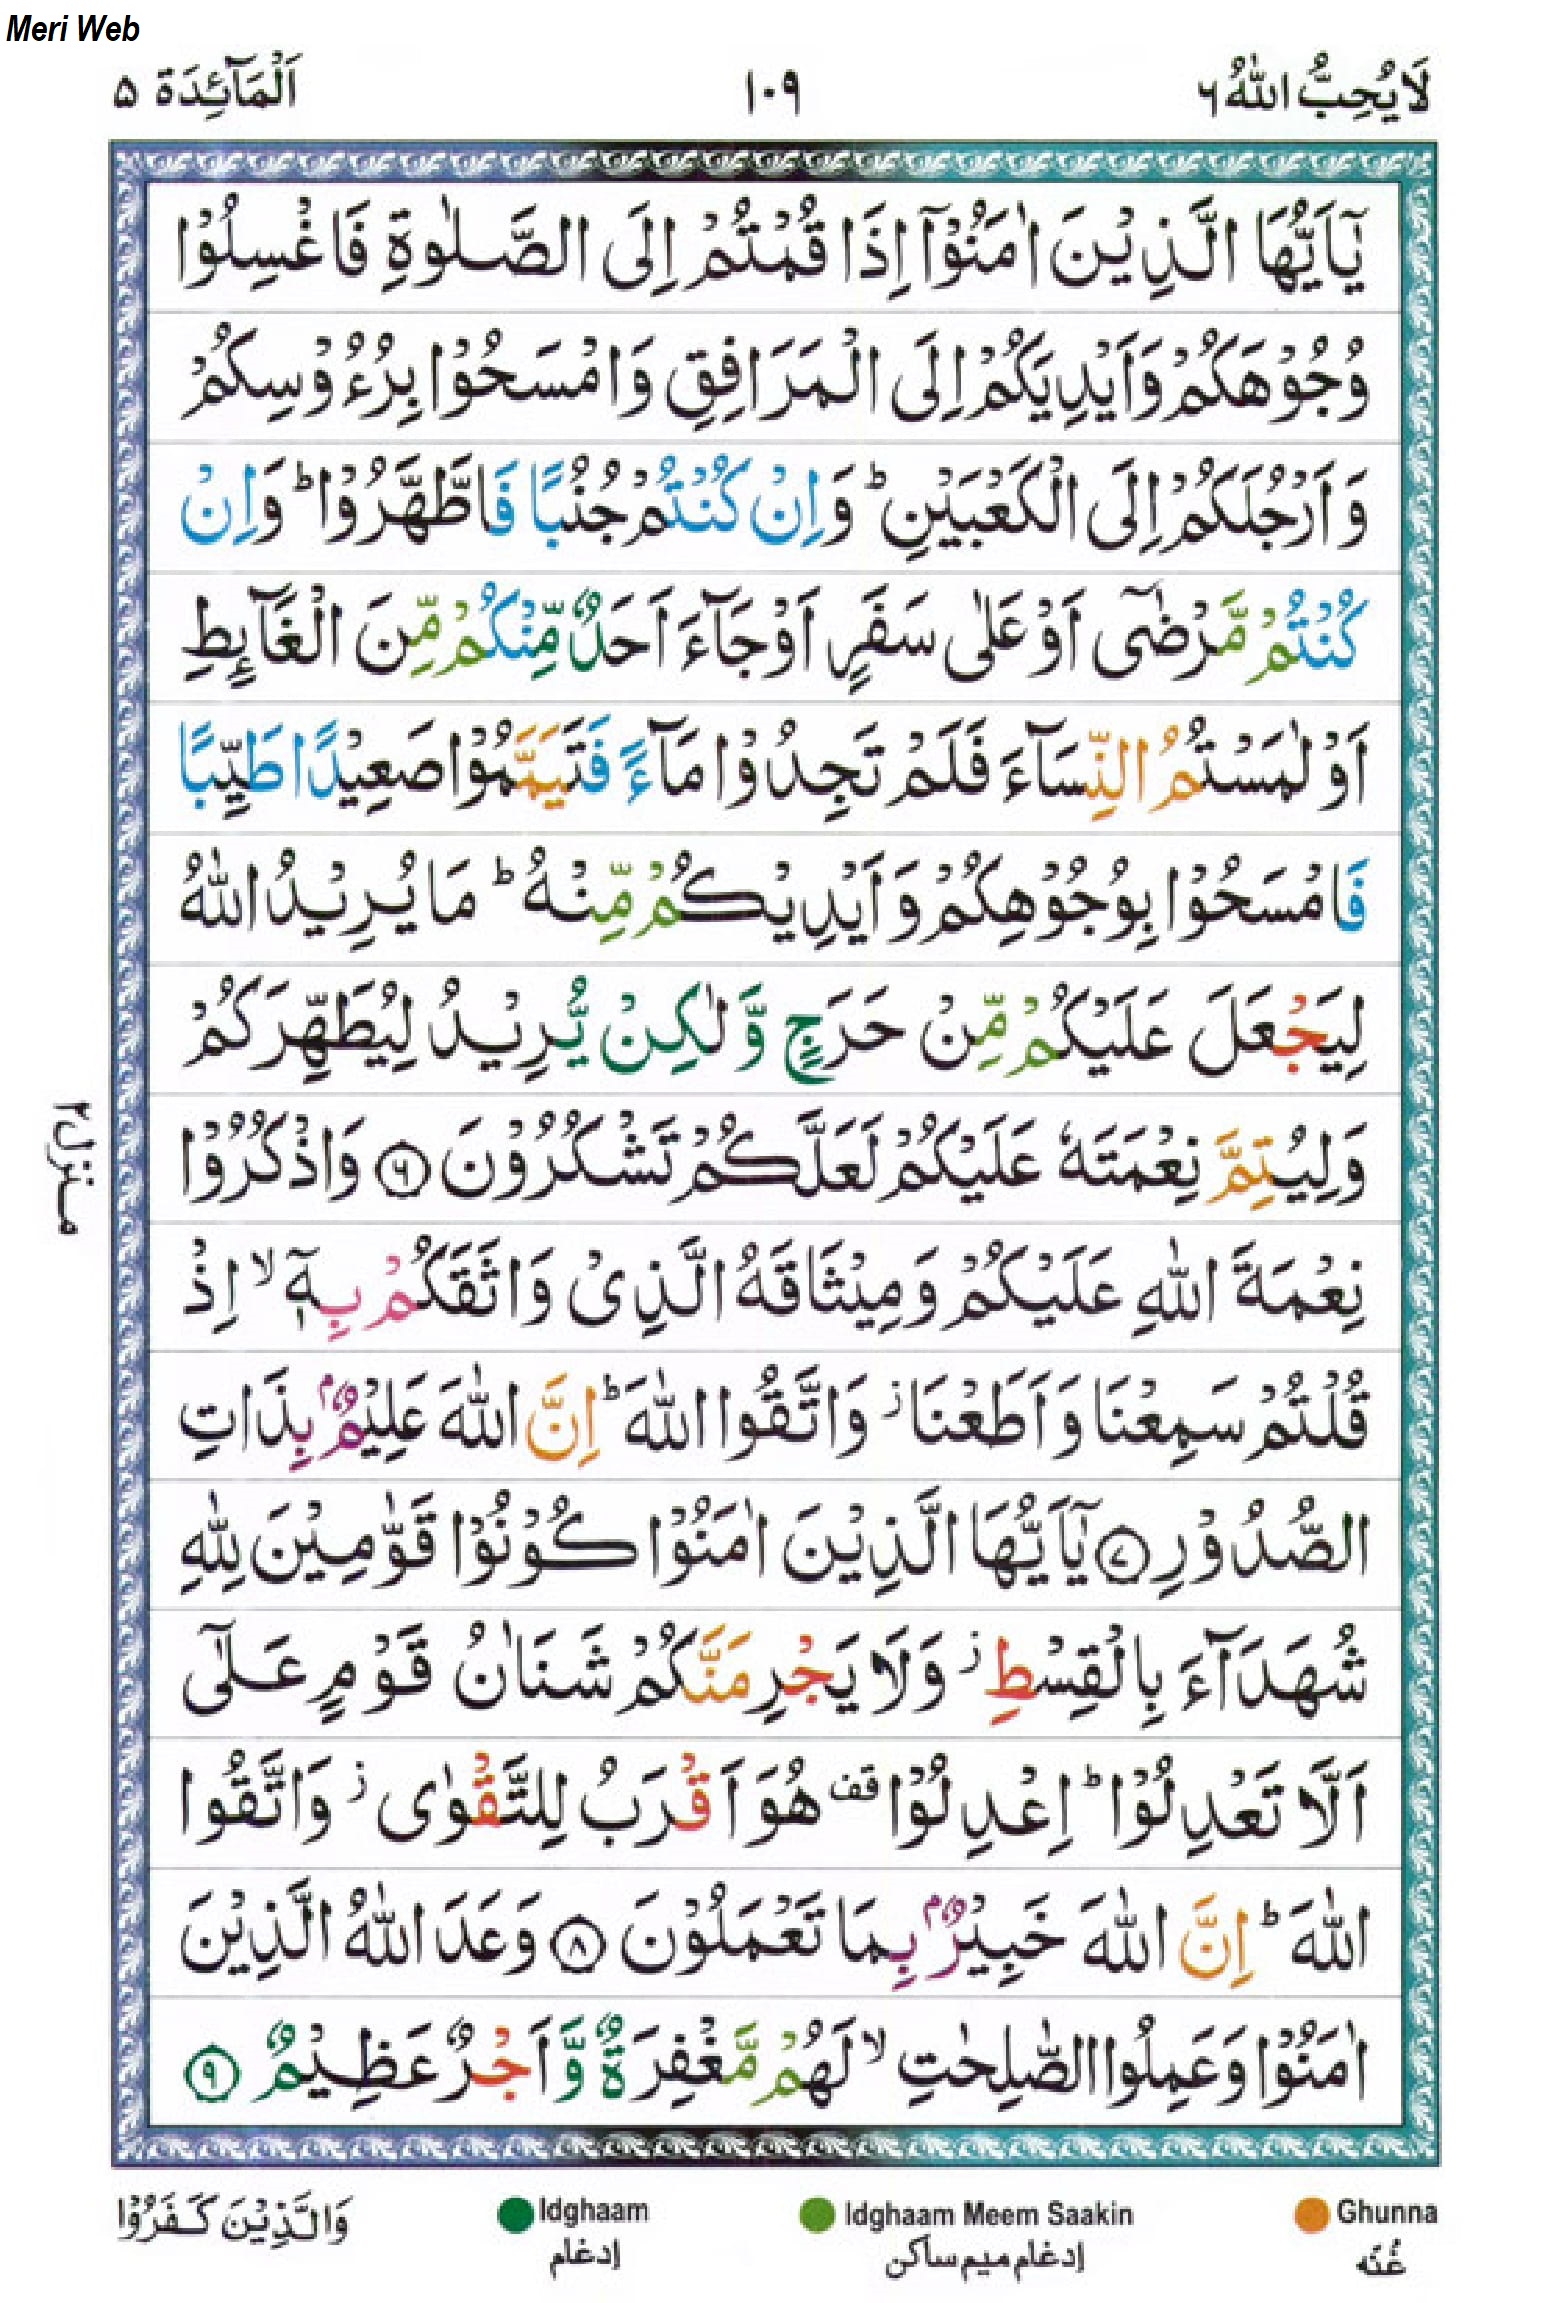 Meri Web
لَا يُحِبُّ اللّٰهُ ٦
١٠٩
اَلْمَآئِدَة ٥
يٰۤاَيُّهَا الَّذِيْنَ اٰمَنُوْۤا اِذَا قُمْتُمْ اِلَى الصَّلٰوةِ فَاغْسِلُوْا
وُجُوْهَكُمْ وَاَيْدِيَكُمْ اِلَى الْمَرَافِقِ وَامْسَحُوْا بِرُءُوْسِكُمْ
وَاَرْجُلَكُمْ اِلَى الْكَعْبَيْنِ ؕ وَاِنْ كُنْتُمْ جُنُبًا فَاطَّهَّرُوْا ؕ وَاِنْ
كُنْتُمْ مَّرْضٰۤى اَوْ عَلٰى سَفَرٍ اَوْ جَآءَ اَحَدٌ مِّنْكُمْ مِّنَ الْغَآئِطِ
اَوْ لٰمَسْتُمُ النِّسَآءَ فَلَمْ تَجِدُوْا مَآءً فَتَيَمَّمُوْا صَعِيْدًا طَيِّبًا
فَامْسَحُوْا بِوُجُوْهِكُمْ وَاَيْدِيْكُمْ مِّنْهُ ؕ مَا يُرِيْدُ اللّٰهُ
لِيَجْعَلَ عَلَيْكُمْ مِّنْ حَرَجٍ وَّلٰكِنْ يُّرِيْدُ لِيُطَهِّرَكُمْ
وَلِيُتِمَّ نِعْمَتَهٗ عَلَيْكُمْ لَعَلَّكُمْ تَشْكُرُوْنَ ۝٦ وَاذْكُرُوْا
نِعْمَةَ اللّٰهِ عَلَيْكُمْ وَمِيْثَاقَهُ الَّذِىْ وَاثَقَكُمْ بِهٖۤ ۙ اِذْ
قُلْتُمْ سَمِعْنَا وَاَطَعْنَا ز وَاتَّقُوا اللّٰهَ ؕ اِنَّ اللّٰهَ عَلِيْمٌۢ بِذَاتِ
الصُّدُوْرِ ۝٧ يٰۤاَيُّهَا الَّذِيْنَ اٰمَنُوْا كُوْنُوْا قَوّٰمِيْنَ لِلّٰهِ
شُهَدَآءَ بِالْقِسْطِ ز وَلَا يَجْرِمَنَّكُمْ شَنَاٰنُ قَوْمٍ عَلٰۤى
اَلَّا تَعْدِلُوْا ؕ اِعْدِلُوْا قف هُوَ اَقْرَبُ لِلتَّقْوٰى ز وَاتَّقُوا
اللّٰهَ ؕ اِنَّ اللّٰهَ خَبِيْرٌۢ بِمَا تَعْمَلُوْنَ ۝٨ وَعَدَ اللّٰهُ الَّذِيْنَ
اٰمَنُوْا وَعَمِلُوا الصّٰلِحٰتِ ۙ لَهُمْ مَّغْفِرَةٌ وَّاَجْرٌ عَظِيْمٌ ۝٩
منزل ٢
Ghunna
غُنّه
Idghaam Meem Saakin
إدغام ميم ساكن
Idghaam
إدغام
وَالَّذِيْنَ كَفَرُوْا